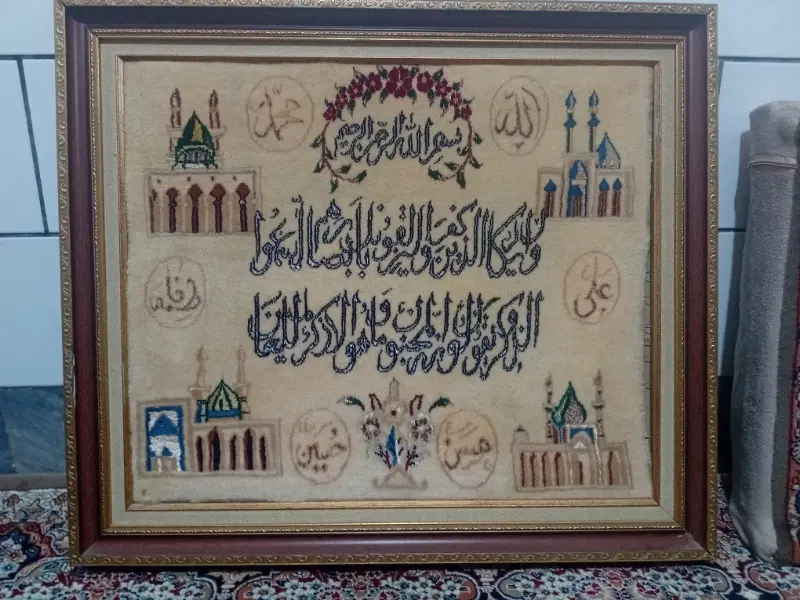 الله
محمد
بسم الله الرحمن الرحیم
وان یکاد الذین کفروا لیزلقونک بابصارهم لما سمعوا
الذکر و یقولون انه لمجنون و ما هو الا ذکر للعالمین
علی
فاطمه
حسن
حسین